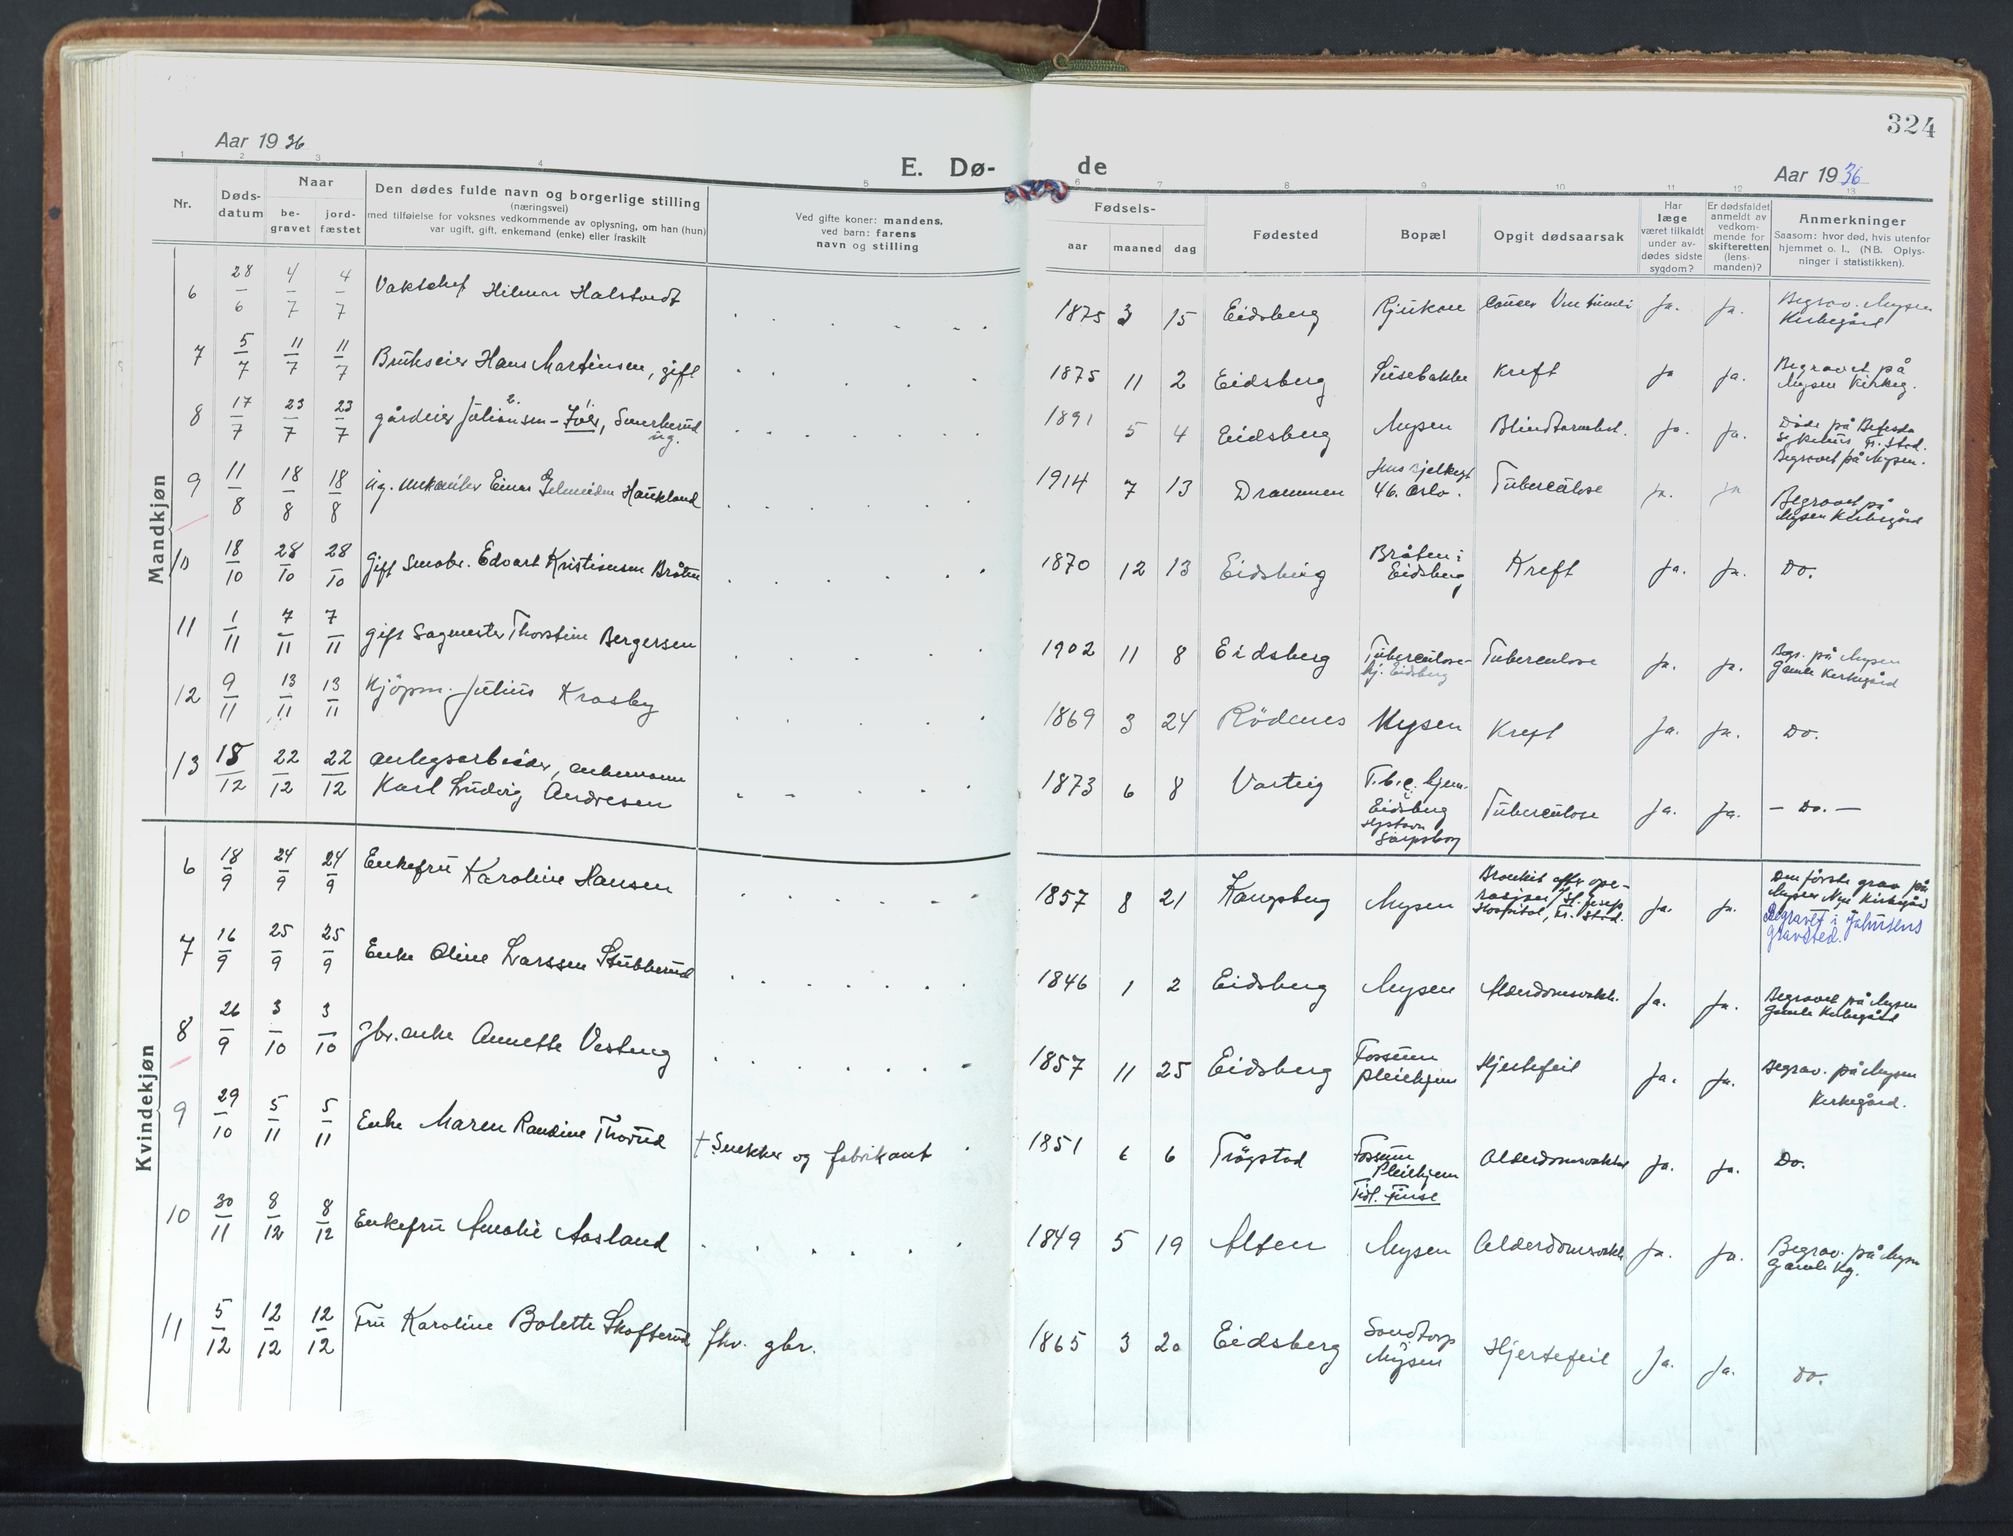 324
Aar 1936
E. Dø- de
Aar 1936
1 2 3 4 5 6 7 8 9 10 11 12 13
Nr.
Døds-
datum
Naar
be-
gravet
jord-
fæstet
Den dødes fulde navn og borgerlige stilling
(næringsvei)
med tilføielse for voksnes vedkommende av oplysning, om han (hun)
var ugift, gift, enkemand (enke) eller fraskilt
Ved gifte koner: mandens,
ved barn: farens
navn og stilling
Fødsels-
aar maaned dag
Fødested
Bopæl
Opgit dødsaarsak
Har
læge
været tilkaldt
under av-
dødes sidste
sygdom?
Er dødsfaldet
anmeldt av
vedkom-
mende for
skifteretten
(lens-
manden)?
Anmerkninger
Saasom: hvor død, hvis utenfor
hjemmet o. l., (NB. Oplys-
ninger i statistikken).
Mandkjøn
6 28/6 4/7 4/7 Hilmar Halstvedt 1875 3 15 Eidsberg Rjukan Ja. Ja. Begrav. Mysen
Kirkegård
7 5/7 11/7 11/7 Brukseier Hans Martinsen, gift 1875 11 2 Eidsberg Susebakke Kreft Ja Ja. Begravet på
Mysen Kirkeg.
8 17/7 23/7 23/7 gårdeier ug. 1891 5 4 Eidsberg Mysen Ja. Ja. Døde på Betesda
Sykehus Fr. Stad.
Begravet på Mysen.
9 11/8 18/8 18/8 ug. mekaniker Einar Haukland 1914 7 13 Drammen 46. Oslo. Tuberculose Ja. Ja Begravet på
Mysen Kirkegård
10 18/10 28/10 28/10 Gift Småbr. Edvart Kristiansen Bråten 1870 12 13 Eidsberg Bråten i
Eidsberg Kreft Ja. Ja. Do.
11 1/11 7/11 7/11 gift Sagmester Thorstein Bergersen 1902 11 8 Eidsberg Tuberculose-
hj. Eidsberg Tuberculose Ja. Ja. Begr. på Mysen
gamle Kirkegård
12 9/11 13/11 13/11 Kjöpm. Julius Krosby 1869 3 24 Rödenes Mysen Kreft Ja. Ja. Do.
13 18/12 22/12 22/12 anlegsarbeider, enkemann
Karl Ludvig Andresen 1873 6 8 Varteig T.b.c. hjem.
i
Eidsberg
Sarpsborg Tuberculose Ja. Ja. — Do. —
Kvindekjøn
6 18/9 24/9 24/9 Enkefru Karoline Hansen 1857 8 21 Kongsberg Mysen Bronkit efter ope-
rasjon / St. Josep
Hospital, Fr. Stad. Ja. Ja. Den första grav på
Mysen Nye Kirkegård
Begravet i Johnsens
gravsted.
7 16/9 25/9 25/9 Enke Oline Larssen Stubberud 1846 1 2 Eidsberg Mysen Alderdomsvakk. Ja. Ja. Begravet på Mysen
gamle Kirkegård
8 26/9 3/10 3/10 Gbr. enke Annette Vesteng 1857 11 25 Eidsberg Fossum
Pleiehjem Hjertefeil Ja. Ja. Begrav. på Mysen
Kirkegård.
9 29/10 5/11 5/11 Enke Maren Randine Thorud † Snekker og fabrikant 1851 6 6 Trögstad Fossum
Pleiehjem
Tidl. Finse Ja. Ja. Do.
10 30/11 8/12 8/12 Enkefru Amalie Aasland 1849 5 19 Alten Mysen Ja. Ja. Begrav. på Mysen
gamle Kg.
11 5/12 12/12 12/12 Fru Karoline Bolette Skofterud fhv. gbr. 1865 3 20 Eidsberg Sandtorp
Mysen Hjertefeil Ja. Ja. Do.